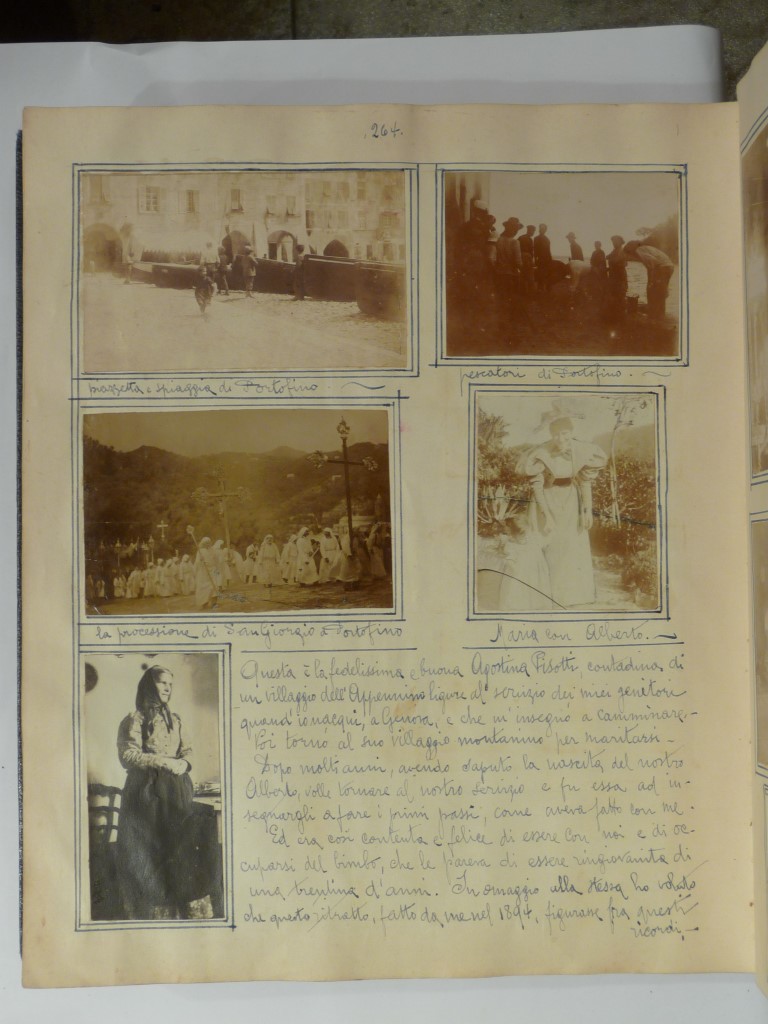 264.
piazzetta e spiaggia di Portofino.
pescatori di Portofino.
la processione di San Giorgio a Portofino
Maria con Alberto.
Questa è la fedelissima e buona Agostina Pisotti, contadina di
un villaggio dell'Appennino ligure al servizio dei miei genitori
quand'io nacqui, a Genova, e che m'insegnò a camminare.-
Poi tornò al suo villaggio montanino per maritarsi-
Dopo molti anni, avendo saputo la nascita del nostro
Alberto, volle tornare al nostro servizio e fu essa ad in-
segnargli a fare i primi passi, come aveva fatto con me.
Ed era così contenta e felice di essere con noi e di oc-
cuparsi del bimbo, che le pareva di essere ringiovanita di
una trentina d'anni. In omaggio alla stessa ho voluto
che questo ritratto, fatto da me nel 1894, figurasse fra questi
ricordi.-